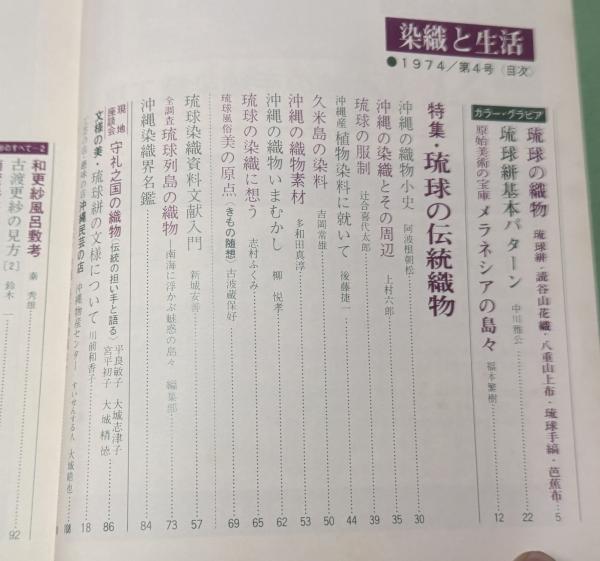 染織と生活
●1974／第4号〈目次〉
カラー・グラビア
琉球の織物 琉球絣・読谷山花織・八重山上布・琉球手縞・芭蕉布…5
琉球絣基本パターン 中川雅公…22
原始美術の宝庫 メラネシアの島々 福本繁樹…12
特集・琉球の伝統織物
沖縄の織物小史 阿波根朝松…30
沖縄の染織とその周辺 上村六郎…35
琉球の服制 辻合喜代太郎…39
沖縄産 植物染料に就いて 後藤捷一…44
久米島の染料 吉岡常雄…50
沖縄の織物素材 多和田真淳…53
沖縄の織物いまむかし 柳悦孝…62
琉球の染織に想う 志村ふくみ…65
琉球風俗 美の原点（きもの随想） 古波蔵保好…69
琉球染織資料文献入門 新城安善…57
全調査 琉球列島の織物―南海に浮かぶ魅惑の島々 編集部…73
沖縄染織界名鑑…84
現地座談会 守礼之国の織物（伝統の担い手と語る） 平良敏子 大城志津子 宮平初子 大城精徳…86
文様の美・琉球絣の文様について 川前和香子…18
沖縄民芸の店 沖縄物産センター すいせんする人 大城皓也
和更紗風呂敷考 秦秀雄…92
古渡更紗の見方[2] 鈴木一